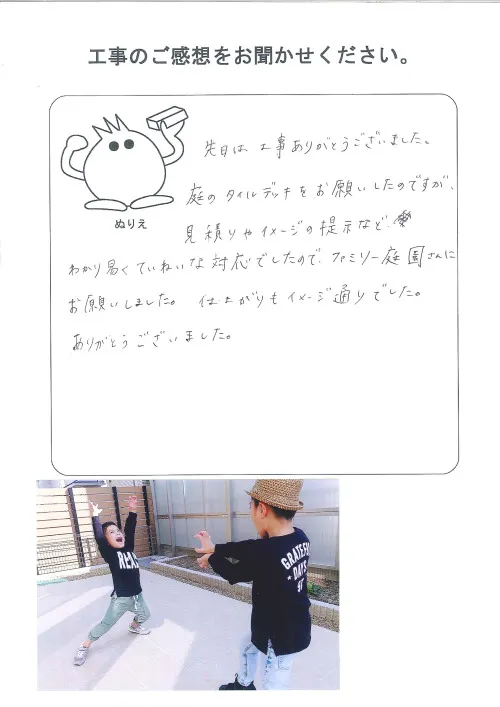 工事のご感想をお聞かせください。
ぬりえ
先日は工事ありがとうございました。
庭のタイルデッキをお願いしたのですが、
見積りやイメージの提示など、
わかり易くていねいな対応でしたので、ファミリー庭園さんに
お願いしました。 仕上がりもイメージ通りでした。
ありがとうございました。
GRATEFUL
DAYS